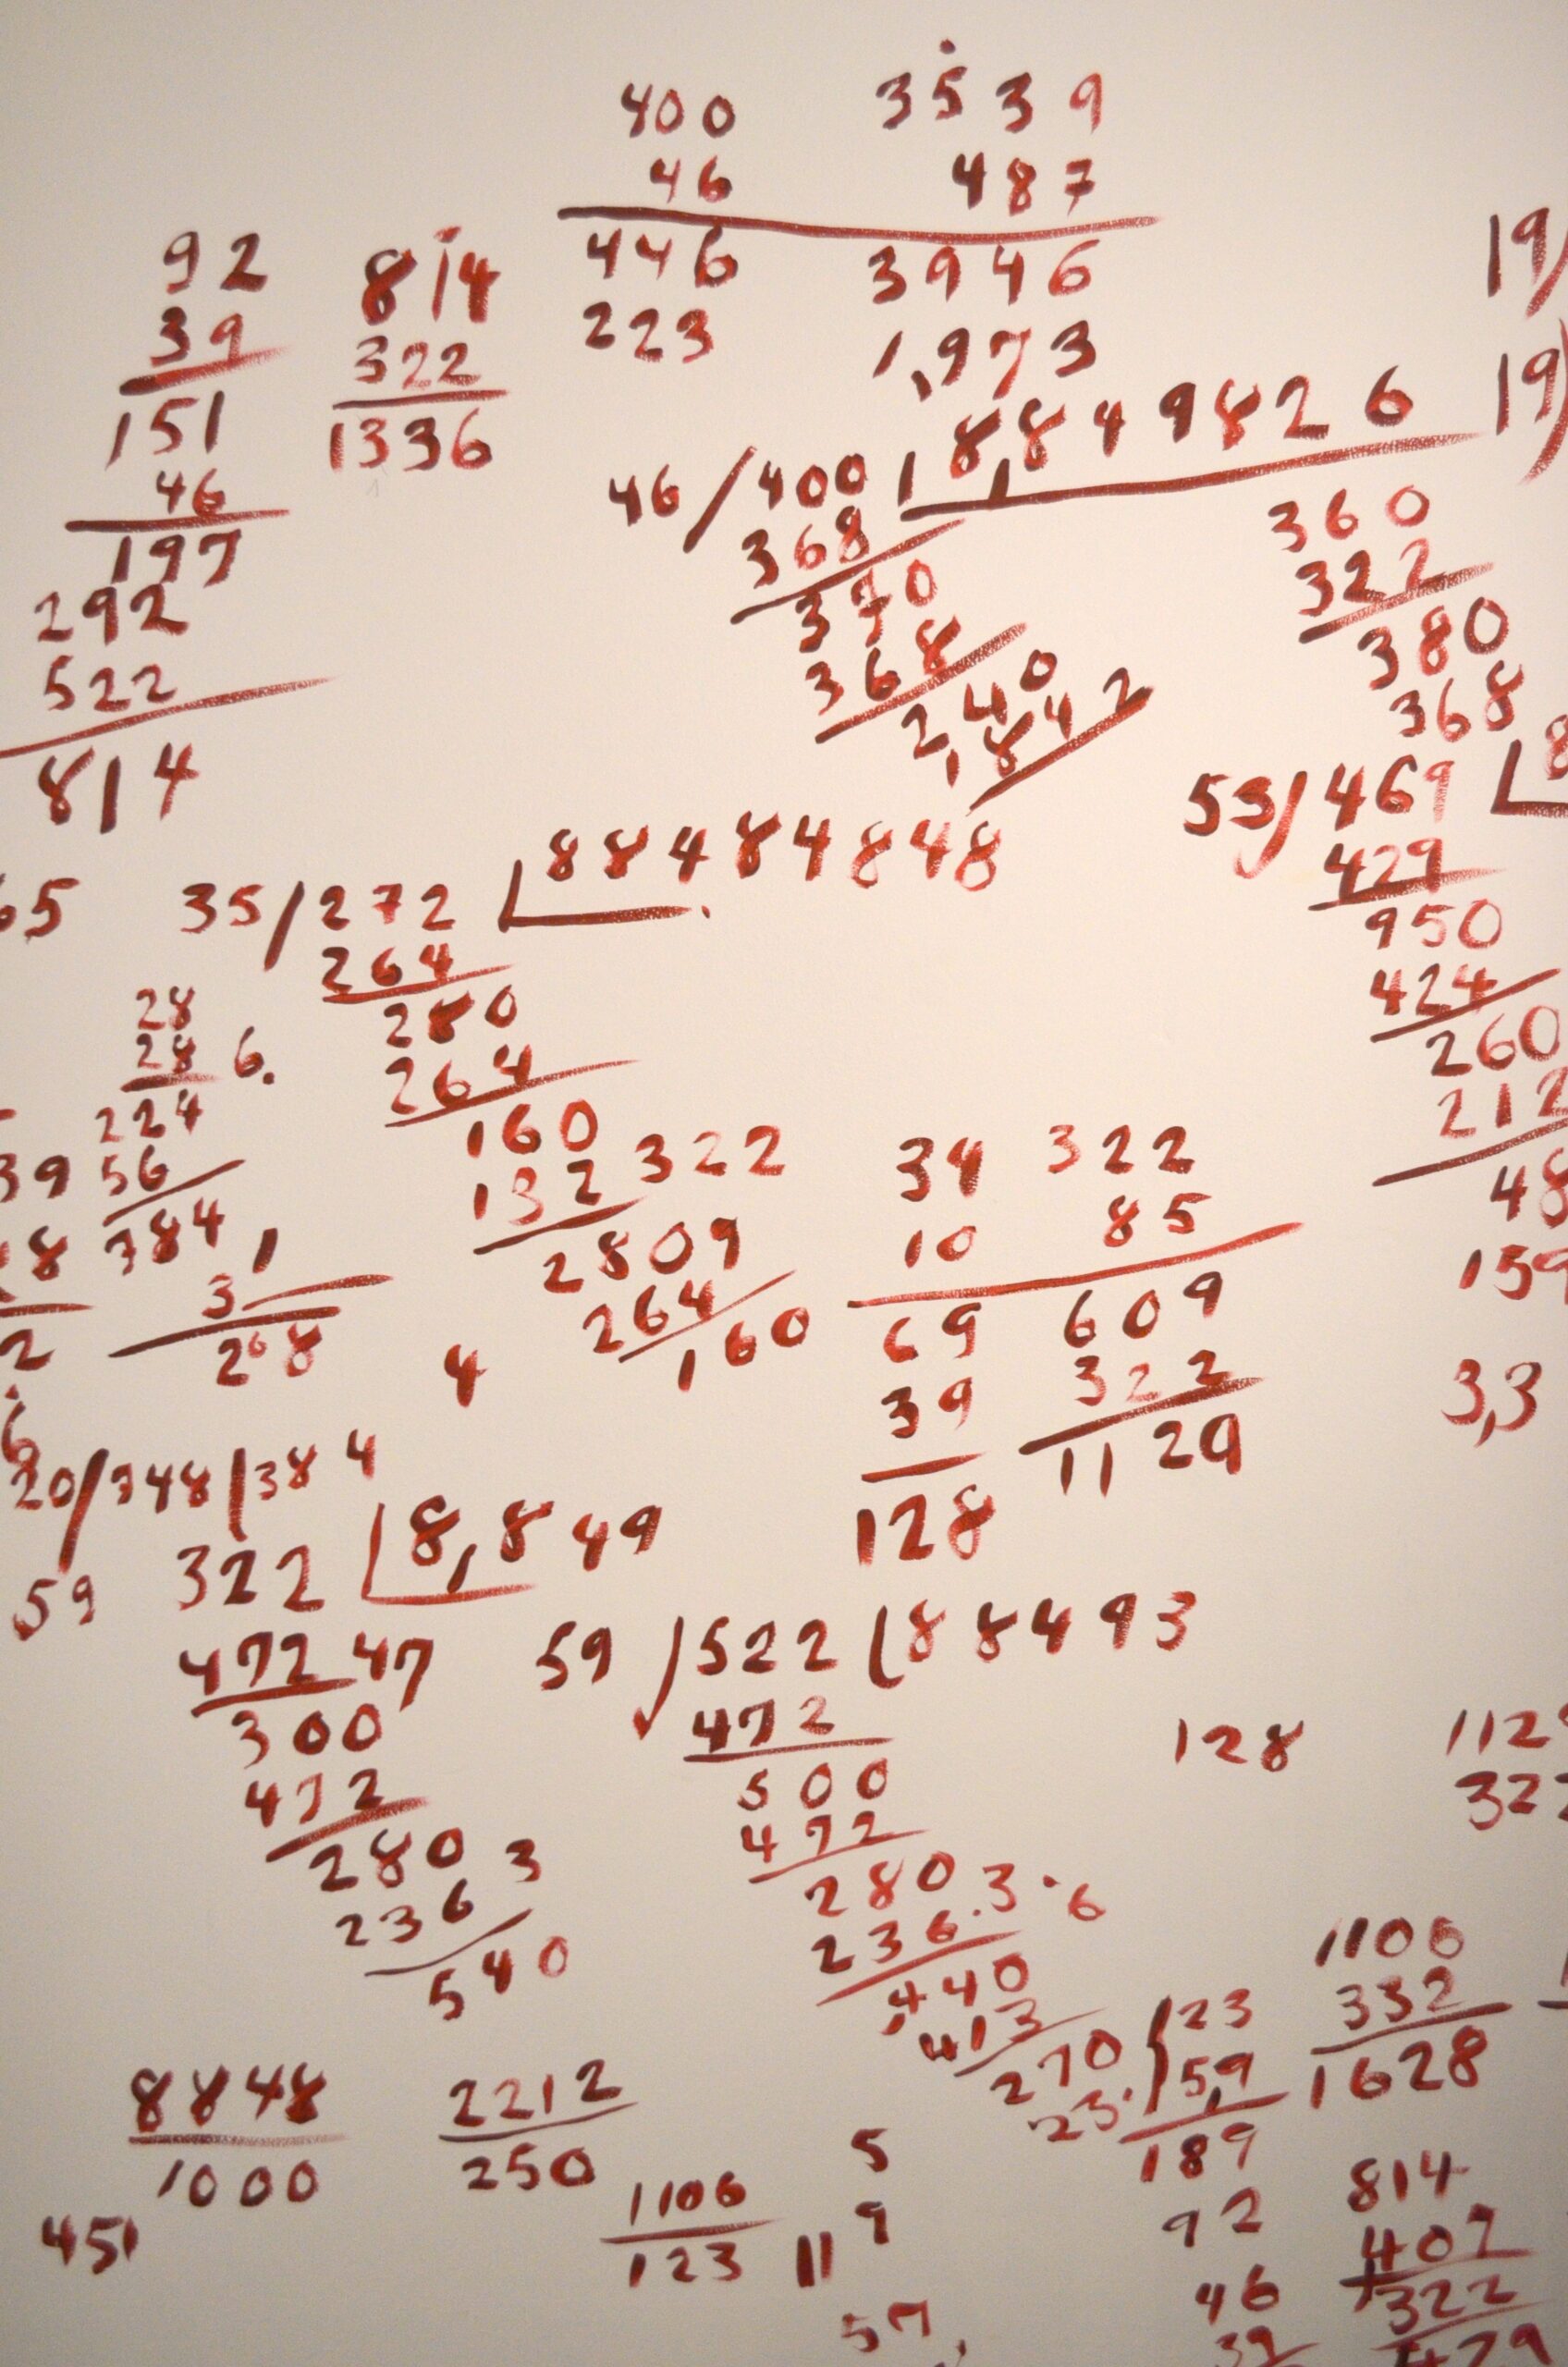 400 3539
46 487
446 3946
223 1,973
92
39
151
46
197
292
522
814
814
322
1336
19)
19)
46/400 1,8849826
368
370
368
240
1842
360
322
380
368
53/469
429
950
424
260
212
48
159
3,3
65
35/272 884.84848
264
280
264
160
132 322
2809
264
160
28
28 6.
224
56
784 1
3
268
39
18
2
4
34 322
10 85
69 609
39 322
128 1129
6
20/348/38 4
59 322 8,849
472 47
300
472
280 3
236
540
59/522 88493
472
500
472
280 3.6
236.
440
413
270
23.
23
59
189
128
112
322
1106
332
1628
8848
1000
2212
250
1106
123
451
11
5
9
57,
92
46
39
814
407
322